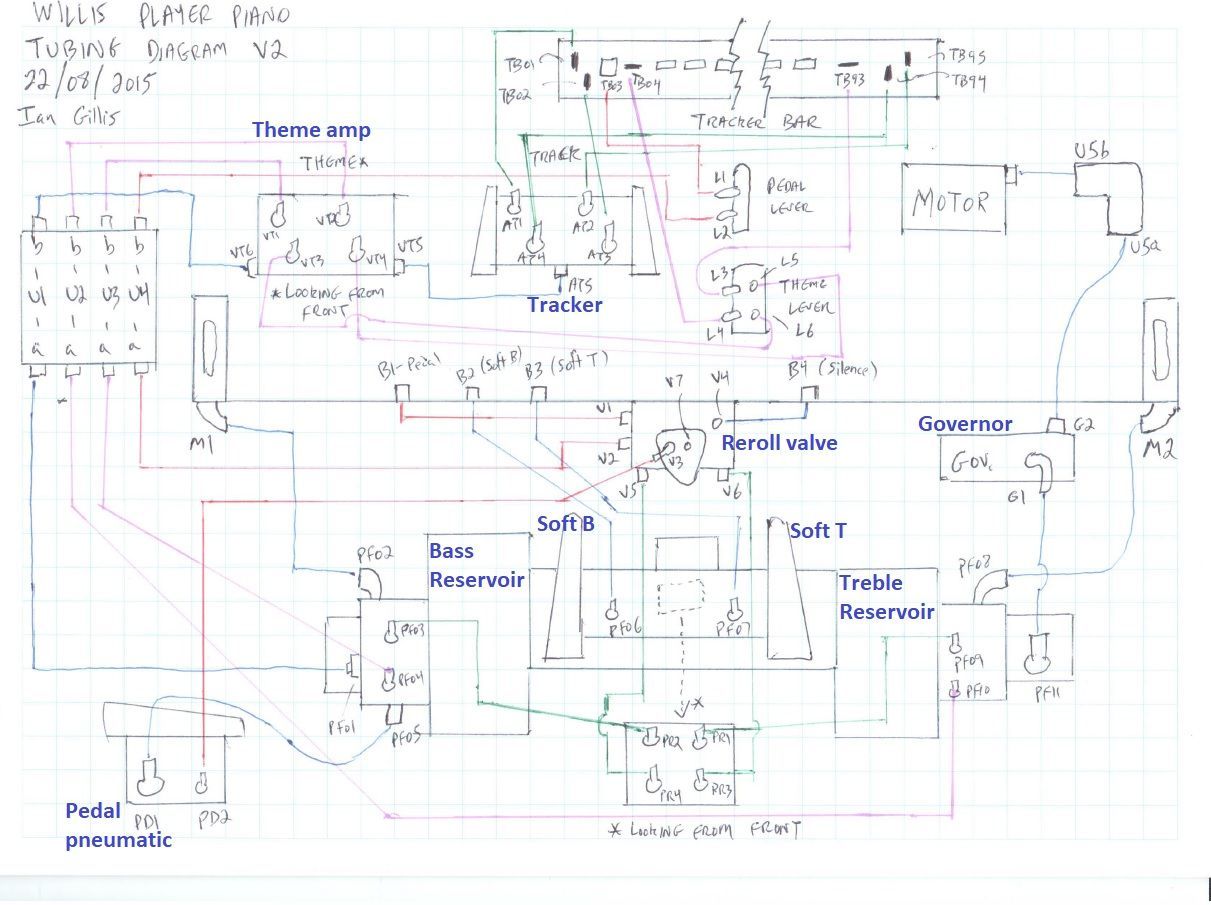 WILLIS PLAYER PIANO
TUBING DIAGRAM V2
22/08/2015
Ian Gillis
TB01
TB02
TB03
TB04
TB93
TB95
TB94
TRACKER BAR
Theme amp
THEME*
VT1
VT3
VT4
VT6
VT5
*LOOKING FROM
FRONT
TRACK
AT1
AT2
AT4
AT5
Tracker
L1
L2
PEDAL
LEVER
L3
L5
THEME
LEVER
L4
L6
MOTOR
U5b
U5a
b b b b
U1 U2 U3 U4
a a a a
M1
B1-Pedal
B2 (Soft B)
B3 (Soft T)
B4 (Silence)
V7
V4
V1
V2
V3
V5
V6
Reroll valve
Governor
G2
GOV.
G1
M2
Soft B
Soft T
Bass
Reservoir
Treble
Reservoir
PF02
PF03
PF04
PF01
PF05
PF06
PF07
PF08
PF09
PF10
PF11
*
PR2
PR1
PR4
PR3
* LOOKING FROM FRONT
Pedal
pneumatic
PD1
PD2